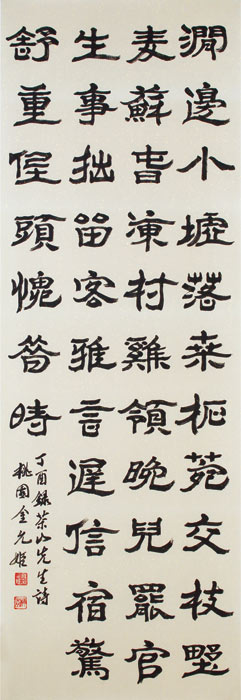 澗邊小墟落桑柘菀交枝野
麥蘇春凍村雞領晚兒罷官
生事拙留客雅言遲信宿驚
舒重低頭愧昔時
丁酉錄茶山先生詩
桃園金允姬